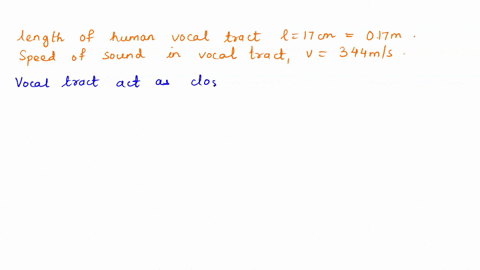 length of human vocal tract l = 17 cm = 0.17 m .
Speed of sound in vocal tract, v = 344 m/s .
Vocal tract act as clos